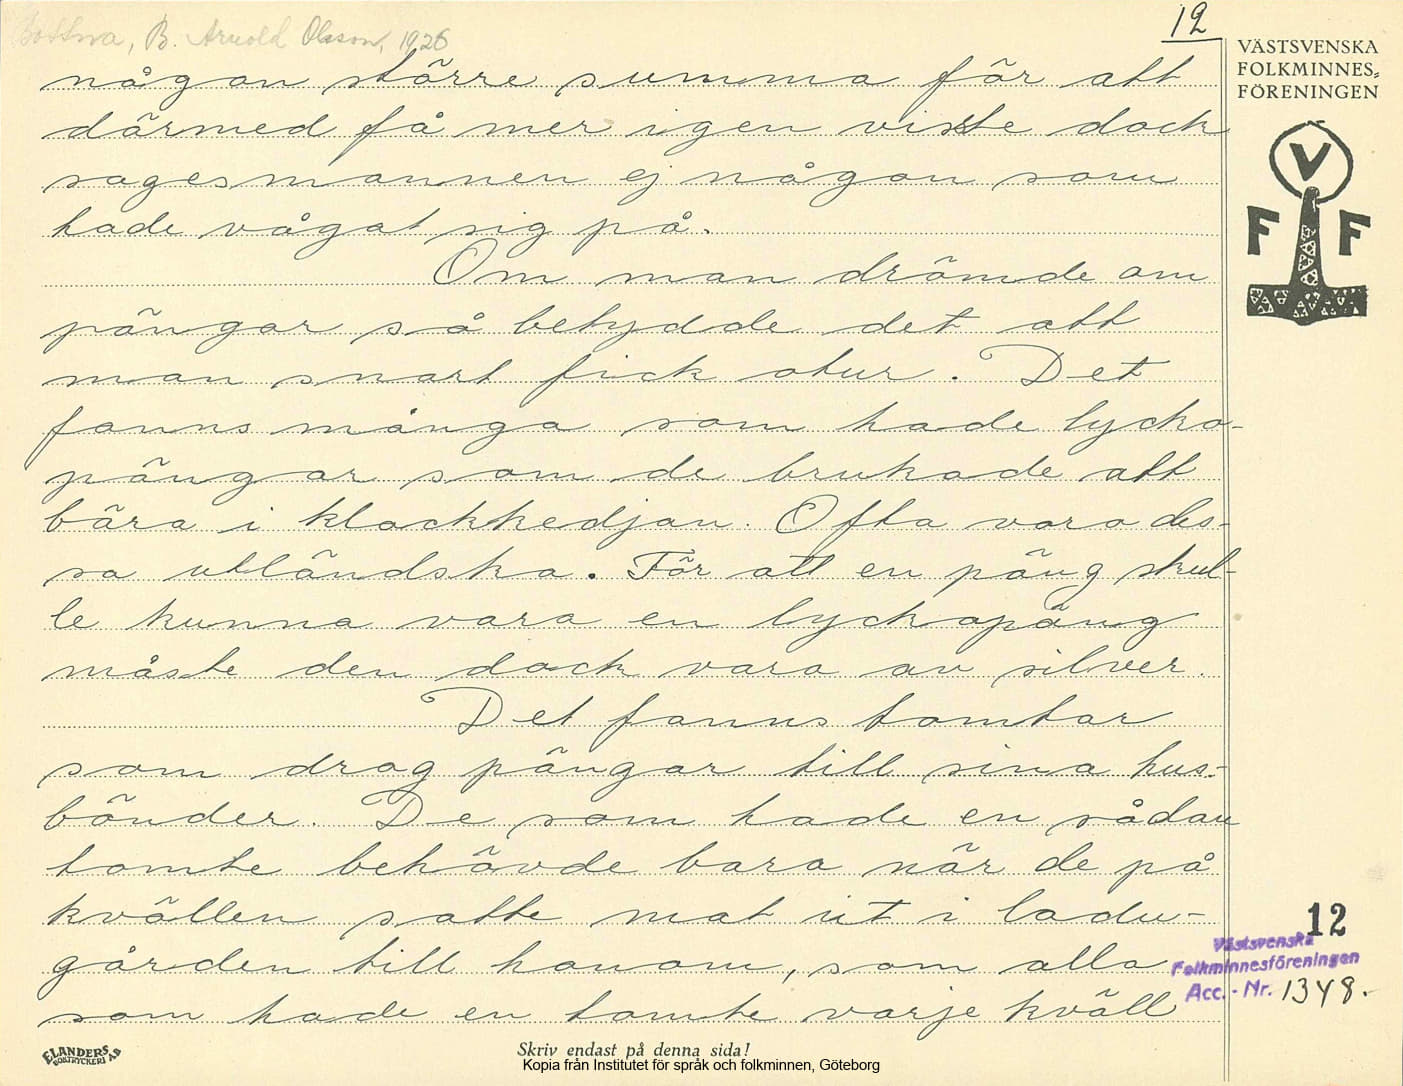 Bottna, B. Arnold Olsson, 1926
12
VÄSTSVENSKA
FOLKMINNES-
FÖRENINGEN
V
F F
någon större summa för att
därmed få mer igen visste dock
sagesmannen ej någon som
hade vågat sig på.
Om man drömde om
pängar så betydde det att
man snart fick otur. Det
fanns många som hade lycko-
pängar som de brukade att
bära i klockkedjan. Ofta vara des-
sa utländska. För att en päng skul-
le kunna vara en lyckopäng
måste den dock vara av silver.
Det fanns tomtar
som drog pängar till sina hus-
bönder. De som hade en sådan
tomte behövde bara när de på
kvällen satte mat ut i ladu-
gården till honom, som alla
som hade en tomte varje kväll
12
Västsvenska
Folkminnesföreningen
Acc. - Nr. 1348.
ELANDERS
BOKTRYCKERI AB
Skriv endast på denna sida!
Kopia från Institutet för språk och folkminnen, Göteborg